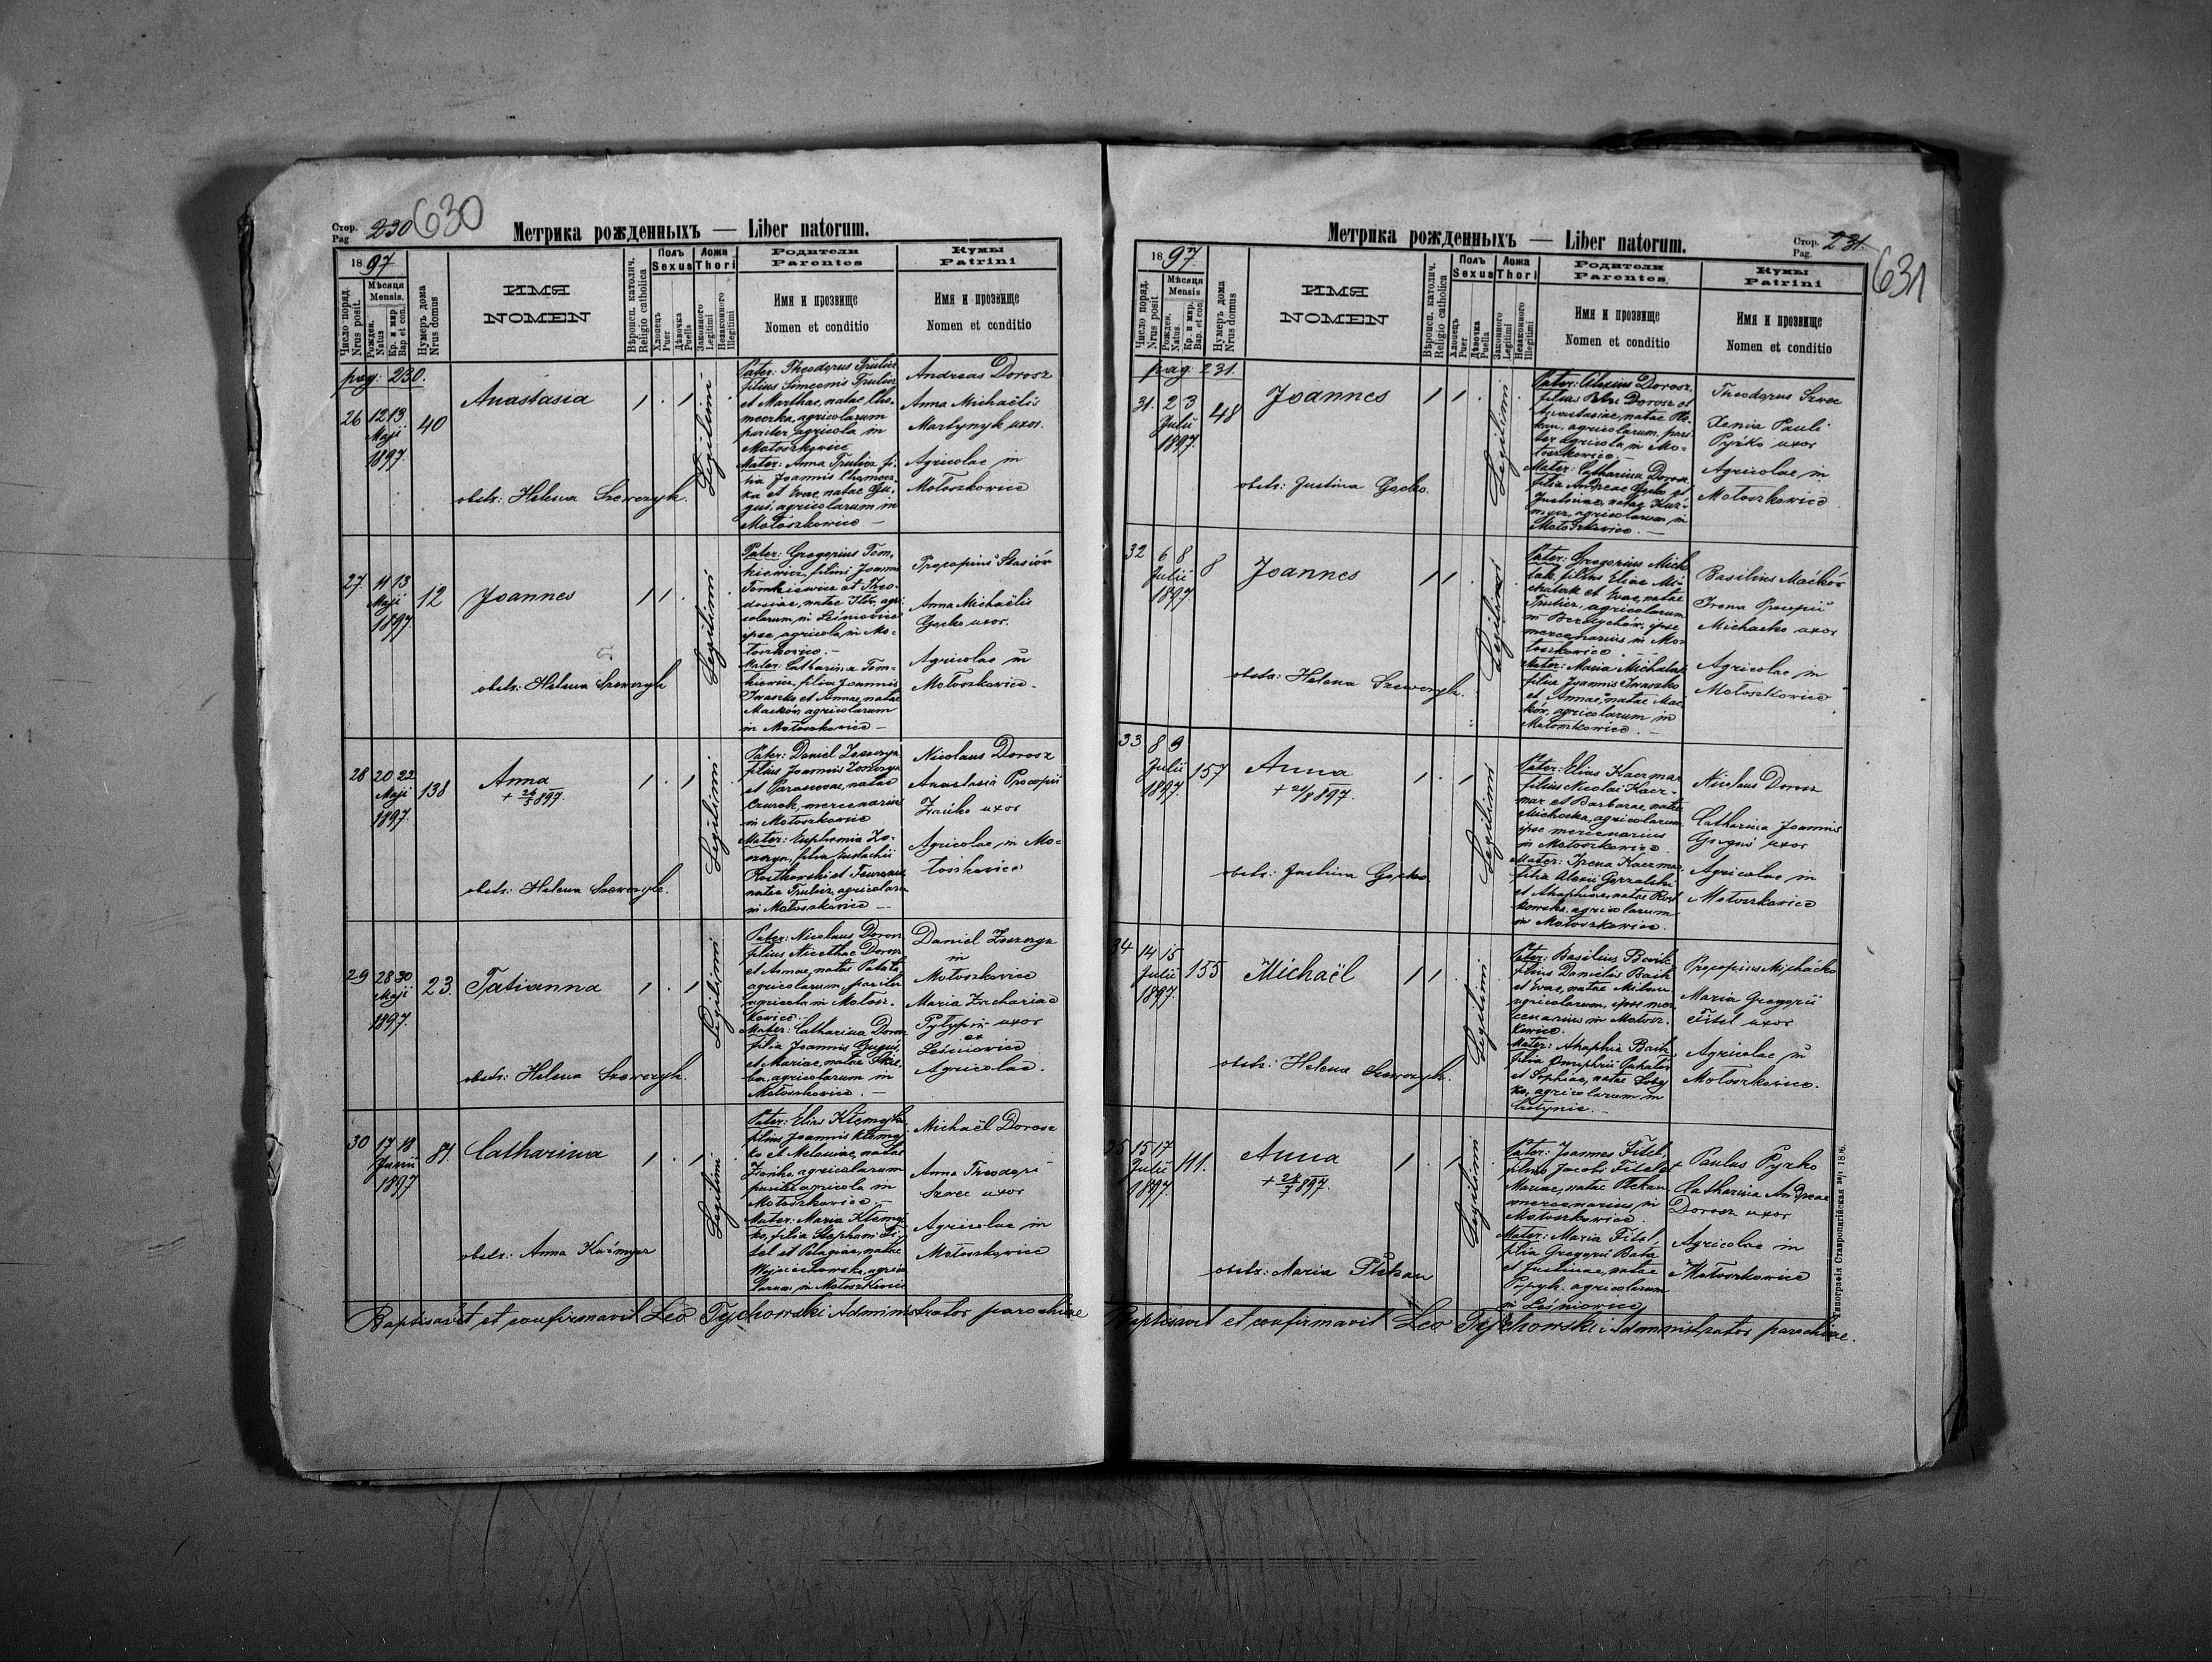 Стор. 230 630
Pag
Метрика рожденныхъ — Liber natorum.
1897
Число поряд.
Nrus posit.
Мѣсяця
Mensis.
Рожден.
Natus
Кр. и мир
Bap. et con.
Нумеръ дома
Nrus domus
ИМЯ
NOMEN
Вѣроисп. католич.
Religio catholica
Полъ
Sexus
Хлопецъ
Puer
Дѣвочка
Puella
Ложа
Thori
Законного
Legitimi
Незаконного
Illegitimi
Родители
Parentes
Имя и прозвище
Nomen et conditio
Кумы
Patrini
Имя и прозвище
Nomen et conditio
pag. 230.
26 12 13 Maji 1897 40
Anastasia
obstr: Helena Szewczyk.
Legitimi
Pater: Theodorus Trulicz
filius Simeonis Trulicz
et Marthae, natae Cho-
meczka, agricolarum
pariter agricola in
Mołoszkowice
Mater: Anna Trulicz fi-
lia Joannis Chomecz-
ka et Evae, natae Gu-
guś, agricolarum in
Mołoszkowice —
Andreas Dorosz
Anna Michaëlis
Martynyk uxor.
Agricolae in
Mołoszkowice
27. 11 13 Maji 1897. 12
Joannes
obstr: Helena Szewczyk
Legitimi
Pater: Gregorius Tom-
kiewicz, filius Joannis
Tomkiewicz et Theo-
dosiae, natae agri-
colarum in Leśniowice
ipse agricola in Mo-
łoszkowice. —
Mater: Catharina Tom-
kiewicz, filia Joannis
Iwaszko et Annae, natae
Maćków, agricolarum
in Mołoszkowice —
Procopius Stasiów
Anna Michaëlis
Gocko uxor.
Agricolae in
Mołoszkowice.
28 20 22 Maji 1897. 138
Anna
+ 26/5 897.
obstr: Helena Szewczyk.
Legitimi
Pater: Daniel
filius Joannis
et Parascevae, natae
mercenarius
in Mołoszkowice
Mater: Euphemia
filia Eustachii
Rostkowski et
natae Trulicz, agricolarum
in Mołoszkowice —
Nicolaus Dorosz
Anastasia Procopii
uxor
Agricolae in Mo-
łoszkowice
29 28 30 Maji 1897. 23.
Tatianna
obstr: Helena Szewczyk.
Legitimi
Pater: Nicolaus Dorosz
filius Nicethae Dorosz
et Annae, natae
agricolarum, pariter
agricola in Mołosz-
kowice. —
Mater: Catharina Dorosz
filia Joannis Guguś,
et Mariae, natae
agricolarum in
Mołoszkowice. —
Daniel
in
Mołoszkowice
Maria Zachariae
uxor
ex
Leśniowice
Agricolae.
30 17 18 Junii 1897 81.
Catharina
obstr: Anna Kuźmycz
Legitimi
Pater: Elias
filius Joannis
et Melaniae, natae
agricolarum
pariter agricola in
Mołoszkowice. —
Mater: Maria
filia Stephani Fi-
tel et Pelagiae, natae
Wojciechowska, agrico-
larum in Mołoszkowice
Michaël Dorosz
Anna Theodori
Szwec uxor
Agricolae in
Mołoszkowice
Baptisavit et confirmavit Leo Tychowski Administrator parochiae
Метрика рожденныхъ — Liber natorum.
Стор. 231. 631
Pag.
1897
Число поряд.
Nrus posit.
Мѣсяця
Mensis
Рожден.
Natus.
Кр. и мир.
Bap. et con.
Нумеръ дома
Nrus domus
ИМЯ
NOMEN
Вѣроисп. католич.
Religio catholica
Полъ
Sexus
Хлопецъ
Puer
Дѣвочка
Puella
Ложа
Thori
Законного
Legitimi
Незаконного
Illegitimi
Родители
Parentes
Имя и прозвище
Nomen et conditio
Кумы
Patrini
Имя и прозвище
Nomen et conditio
pag. 231.
31. 2 3 Julii 1897. 48
Joannes
obstr: Justina Gocko.
Legitimi
Pater: Alexius Dorosz,
filius Petri Dorosz et
Anastasiae, natae Ple-
kan, agricolarum, pari-
ter agricola in Mo-
łoszkowice. —
Mater: Catharina Dorosz
filia Andreae Gocko et
Justinae, natae Kuź-
mycz, agricolarum in
Mołoszkowice. —
Theodorus Szwec
Xenia Pauli
Pyrko uxor
Agricolae in
Mołoszkowice
32 6 8 Julii 1897. 8
Joannes
obstr: Helena Szewczyk.
Legitimi
Pater: Gregorius Mich-
alak, filius Eliae Mi-
chalak et Evae, natae
Trulicz, agricolarum
in Berdychów, ipse
mercenarius in Mo-
łoszkowice.
Mater: Maria Michalak
filia Joannis Iwaszko
et Annae, natae Mać-
ków, agricolarum in
Mołoszkowice. —
Basilius Maćków
Irena Procopii
Michaćko uxor
Agricolae in
Mołoszkowice
33 8 9 Julii 1897. 157
Anna
+ 21/8 897.
obstr: Justina Gocko.
Legitimi
Pater: Elias Kaczmar
filius Nicolai Kacz-
mar et Barbarae, natae
Michaćko, agricolarum
ipse mercenarius
in Mołoszkowice.
Mater: Irena Kaczmar
filia Alexii
et Ahaphiae, natae Rost-
kowska, agricolarum
in Mołoszkowice.
Nicolaus Dorosz
Catharina Joannis
Guguś uxor
Agricolae in
Mołoszkowice
34 14 15 Julii 1897. 155
Michaël
obstr: Helena Szewczyk.
Legitimi
Pater: Basilius
filius Danielis
et Evae, natae
agricolarum, ipse mer-
cenarius in Mołosz-
kowice.
Mater: Ahaphia
filia Onuphrii
et Sophiae, natae
agricolarum in
Procopius Michaćko
Maria Gregorii
Fitel uxor
Agricolae in
Mołoszkowice.
35 15 17 Julii 1897. 111.
Anna
+ 24/7 897.
obstr: Maria Plekan
Legitimi
Pater: Joannes Fitel,
filius Jacobi Fitel et
Mariae, natae Plekan
mercenarius in
Mołoszkowice.
Mater: Maria Fitel,
filia Gregorii Bała
et Justinae, natae
Popyk, agricolarum
in Leśniowice
Paulus Pyrko
Catharina Andreae
Dorosz uxor
Agricolae in
Mołoszkowice
Baptisavit et confirmavit Leo Tychowski Administrator parochiae.
Типографія Ставропигійская